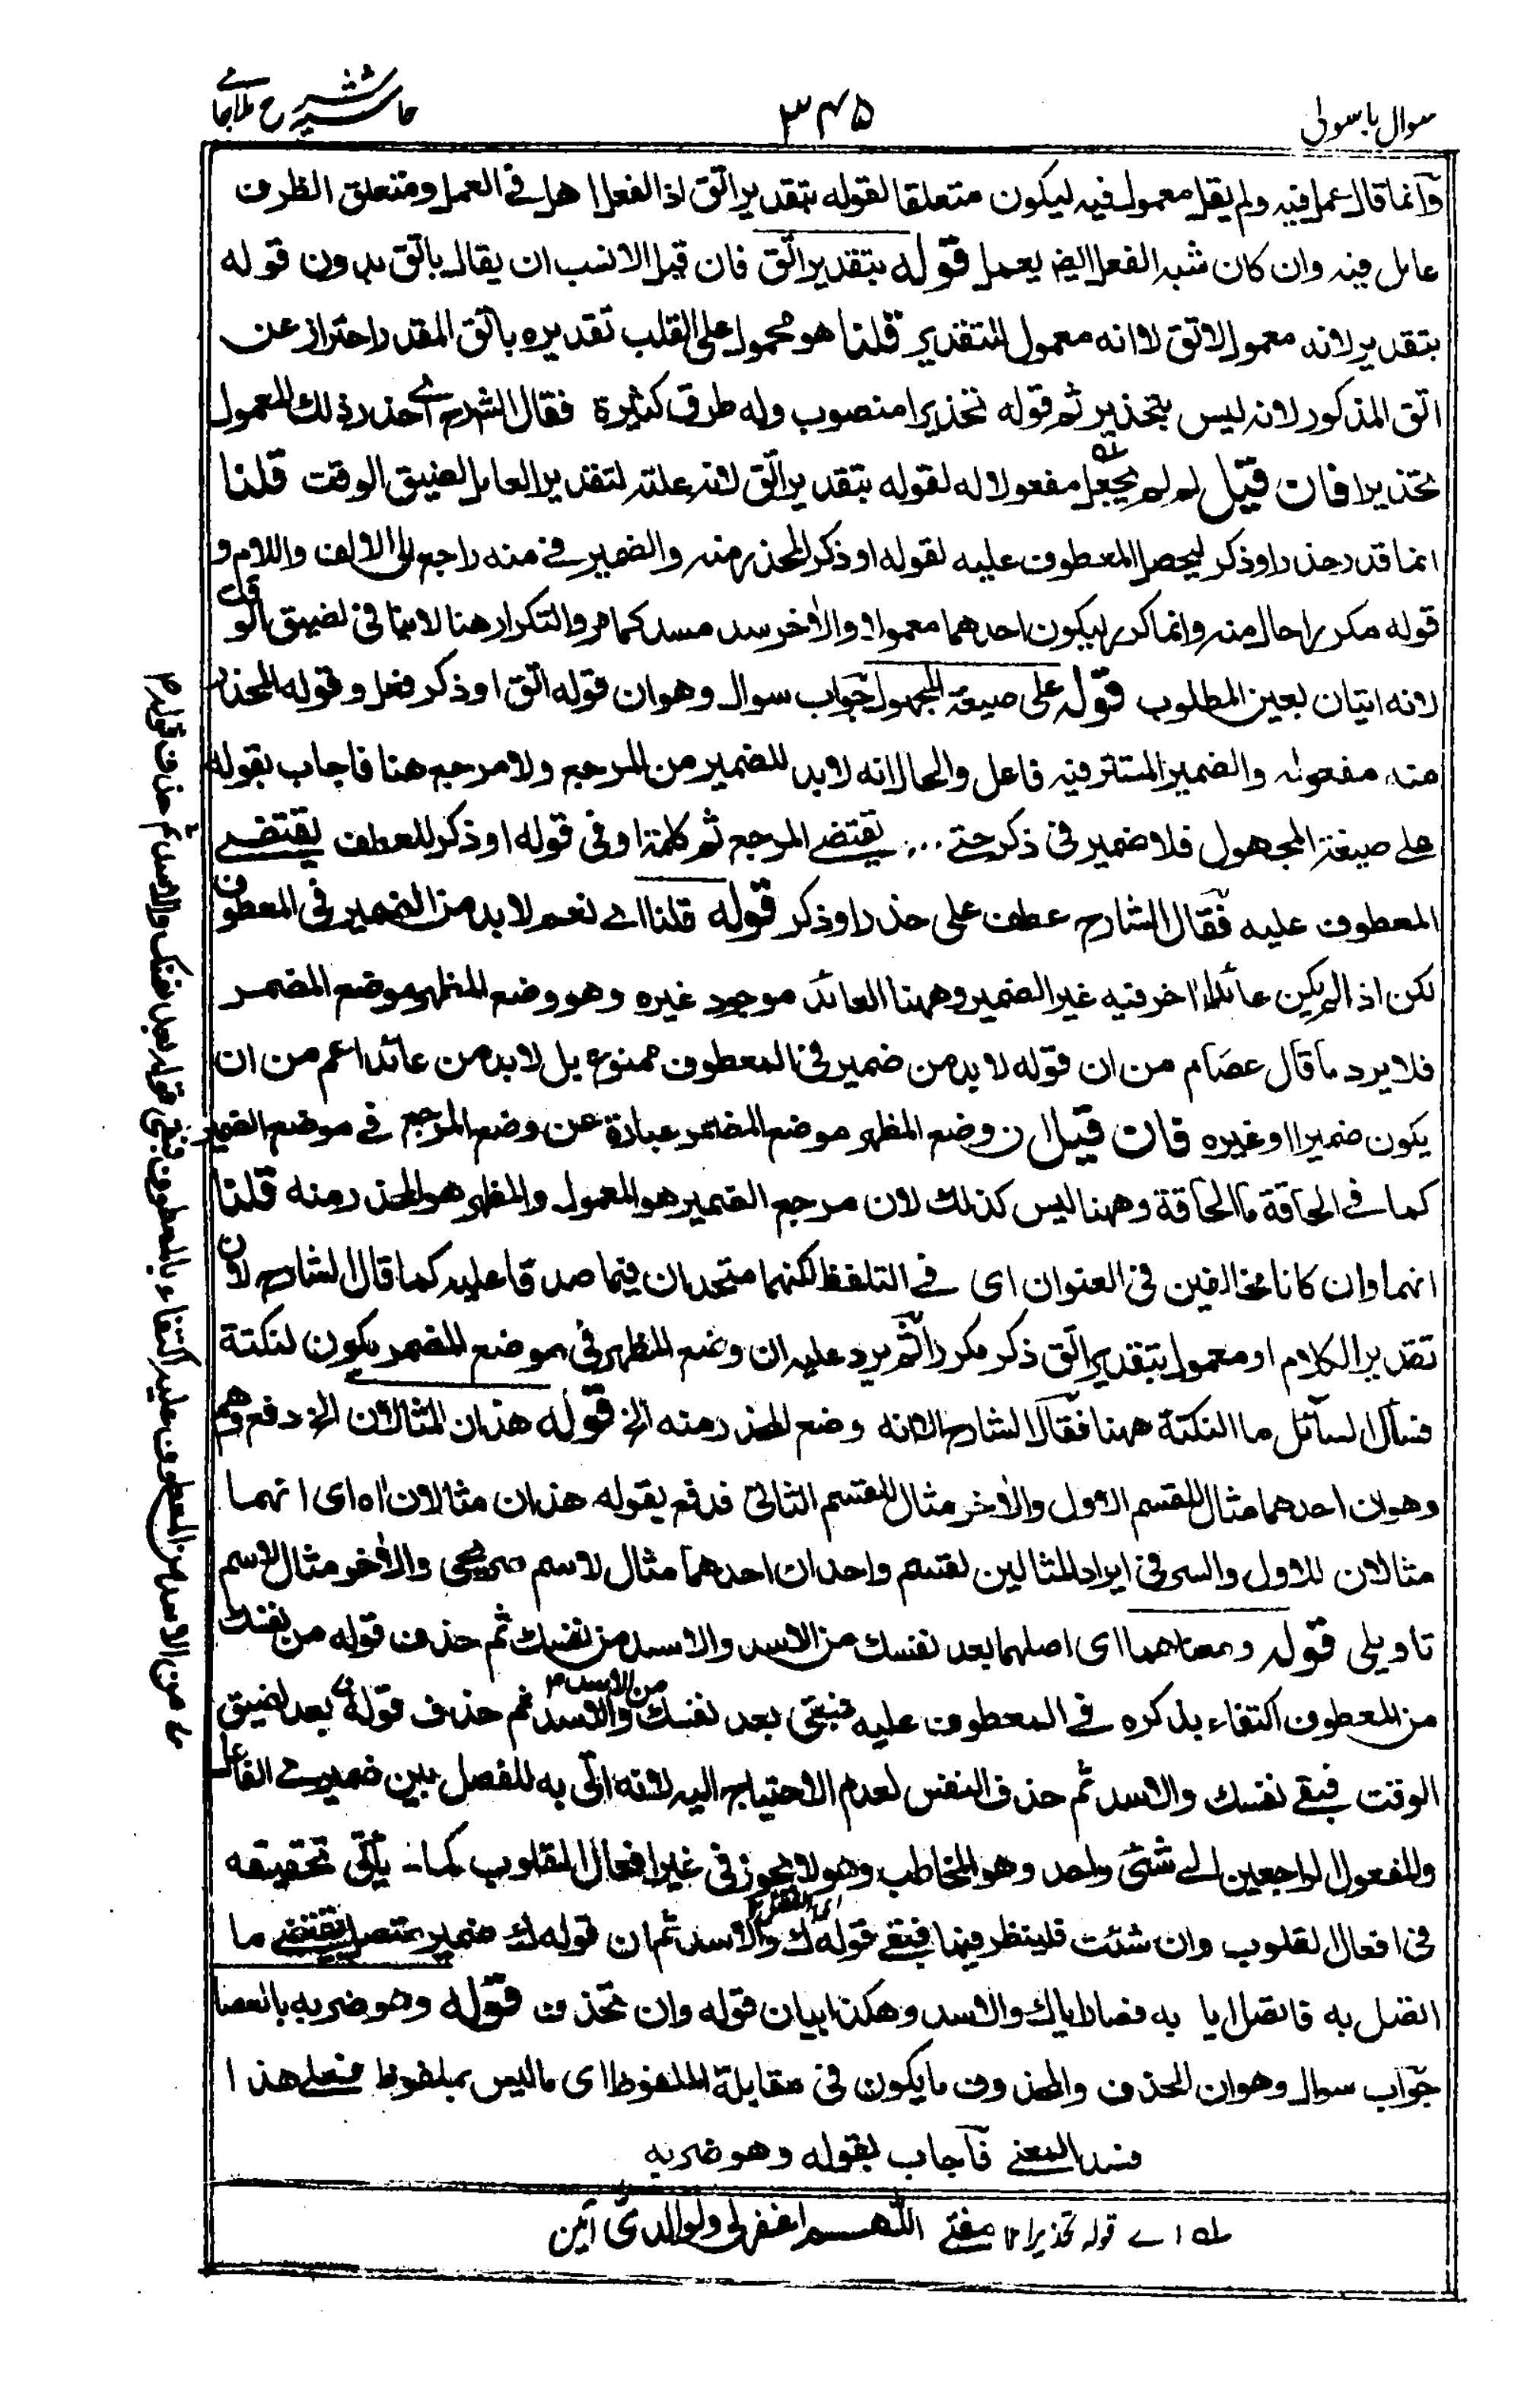 سوال باسولی
۳۴۵
حاشیہ شرح ملا جامے
وآنما قال عمل فيه ولم يقل معمول فيه ليكون متعلقا لقوله بتقدير اتق اذ الفعل اهل فے العمل ومتعلق الظرف
عامل فيه وان كان شبه الفعل ايضا يعمل قوله بتقدير اتق فان قيل الانسب ان يقال باتق بدون قوله
بتقدير لانه معمول لاتق لا انه معمول التقدير قلنا هو محمول على القلب تقديره باتق المقدر احتراز عن
اتق المذكور لانه ليس بتحذير ثم قوله تحذيرا منصوب وله طرق كثيرة فقال الشارح اے حذر ذلك المعمول
تحذيرا فان قيل لم لم يجعل مفعولا له لقوله بتقدير اتق لانه علته لتقدير العامل لضيق الوقت قلنا
انما قدر حذر او ذكر ليحصل المعطوف عليه لقوله او ذكر المحذر منه والضمير فے منه راجع الى الالف واللام و
قوله مكررا حال منه وانما كرر ليكون احدهما معمولا والآخر سد مسده كما مر والتكرار هنا لا ينافى لضيق الوقت
لانه اتيان بعين المطلوب قوله على صيغة المجهول جواب سوال وهو ان قوله اتق او ذكر فعل وقوله المحذر
منه مفعوله والضمير المستتر فيه فاعل والحال انه لا بد للضمير من المرجع ولا مرجع هنا فاجاب بقوله
على صيغة المجهول فلا ضمير فى ذكر حتے يقتضے المرجع ثم كلمة او فى قوله او ذكر للعطف يقتضے
المعطوف عليه فقال الشارح عطف على حذر او ذكر قوله قلنا اے نعم لا بد من الضمير فى المعطوف
لكن اذا لم يكن عائدا اخر فيه غير الضمير وههنا العائد موجود غيره وهو وضع المظهر موضع المضمر
فلا يرد ما قال عصام من ان قوله لا بد من ضمير فى المعطوف ممنوع بل لا بد من عائد اعم من ان
يكون ضميرا او غيره فان قيل ان وضع المظهر موضع المضمر عبارة عن وضع المرجع فے موضع الضمير
كما فے الحاقة ما الحاقة وههنا ليس كذلك لان مرجع الضمير هو المعمول والمظهر هو المحذر منه قلنا
انهما وان كانا مخالفين فى العنوان اى فے التلفظ لكنهما متحدان فيما صدقا عليه كما قال الشارح لان
تقدير الكلام او معمول بتقدير اتق ذكر مكررا ثم يرد عليه ان وضع المظهر فى موضع المضمر يكون لنكتة
فسأل السائل ما النكتة ههنا فقال الشارح الا انه وضع المحذر منه الخ قوله هذان المثالان الخ دفع وهم
وهو ان احدهما مثال للقسم الاول والآخر مثال للقسم الثانى فدفع بقوله هذان مثالان اه اى انهما
مثالان للاول والسر فى ايراد المثالين لقسم واحد ان احدهما مثال لاسم صريحى والآخر مثال لاسم
تاويلى قوله ومعناهما اى اصلهما بعد نفسك من الاسد والاسد من نفسك ثم حذف قوله من نفسك
من المعطوف اكتفاء بذكره فے المعطوف عليه فبقى بعد نفسك من الاسد والاسد ثم حذف قوله بعد لضيق
الوقت فبقے نفسك والاسد ثم حذف النفس لعدم الاحتياج اليه لانه اتى به للفصل بين ضميرے الفاعل
والمفعول الراجعين الے شئ واحد وهو المخاطب وهو لا يجوز فى غير افعال القلوب كما يأتى تحقيقه
فى افعال القلوب وان شئت فلينظر فيها فبقے قوله ك والاسد ثم ان قوله ك ضمير متصل يقتضے ما
اتصل به فاتصل ايا به فصار اياك والاسد وهكذا بيان قوله وان تحذف قوله وهو ضربه بالعصا
جواب سوال وهو ان الحذف والمحذوف ما يكون فى مقابلة الملفوظ اى ما ليس بملفوظ فعلے هذا
فسد المعنے فاجاب بقوله وهو ضربه
له اے قوله تحذيرا ۱۲ مفتے اللهم اغفر لى ولوالدىّ آمين